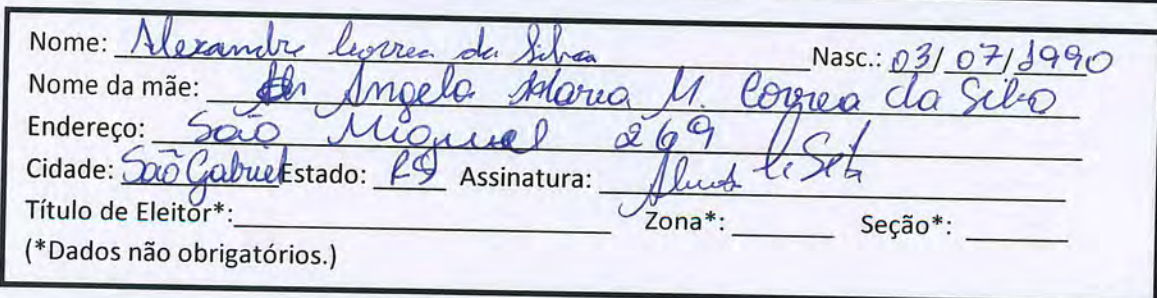 Nome: Alexandre Correa da Silva Nasc.: 03/07/1990
Nome da mãe: Angela Maria M. Correa da Silva
Endereço: São Miguel 269
Cidade: São Gabriel Estado: RS Assinatura:
Título de Eleitor*: Zona*: Seção*:
(*Dados não obrigatórios.)